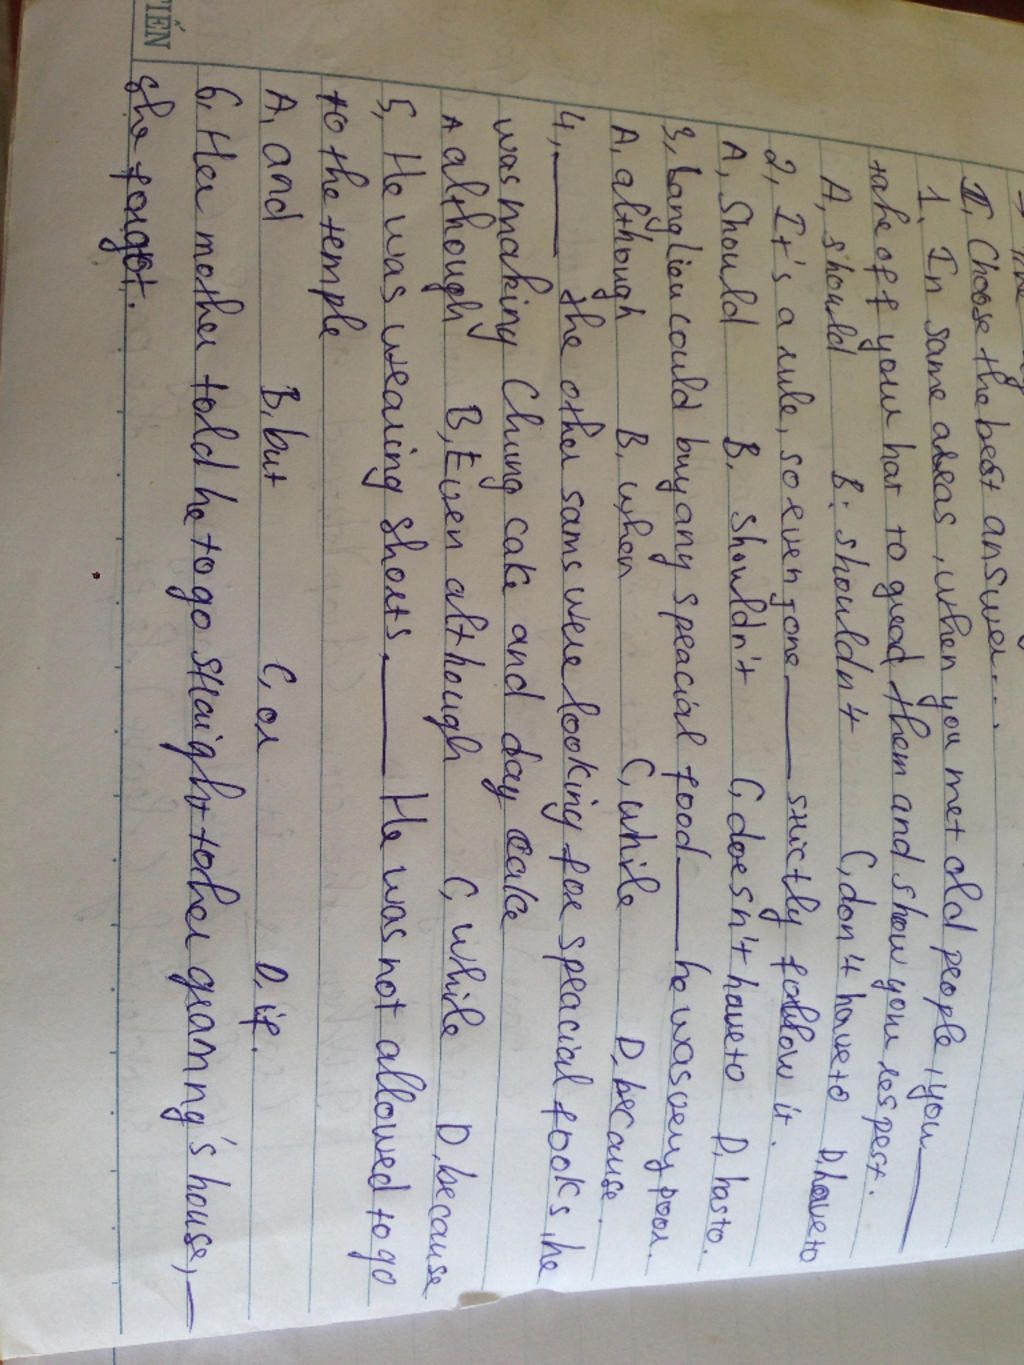 I, Choose the best answer...
1. In same areas, when you met old people, you ____
take off your hat to greed them and show your respest.
A, should B. shouldn't C, don't have to D, have to
2, It's a rule, so everyone ____ strictly follow it.
A, Should B. Shouldn't C, doesn't have to D, has to.
3, Lang Lieu could buy any speacial food ____ he was very poor.
A, although B. when C, while D, because.
4, ____ the other sams were looking for speacial fooks, he
was making Chung cake and day cake
A although B, Even although C, while D, because
5, He was wearing shorts, ____ He was not allowed to go
to the temple
A, and B, but C, or D, if.
6, Her mother told he to go straight to her granny's house, ____
she forgot.
TIẾN